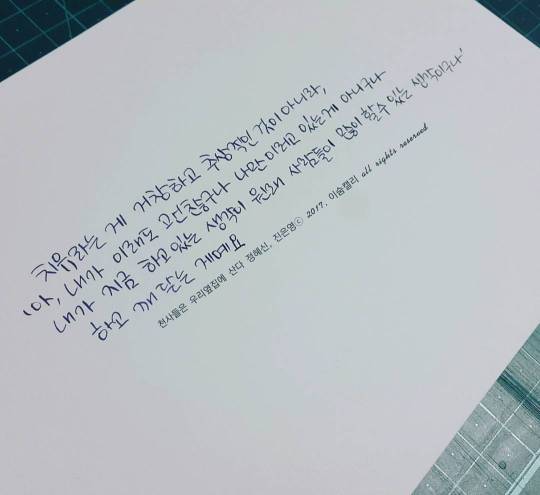 치유라는 게 거창하고 추상적인 것이 아니라,
'아, 내가 이래도 괜찮구나 나만 이러고 있는게 아니구나
내가 지금 하고 있는 생각이 원래 사람들이 많이 할 수 있는 생각이구나'
하고 깨닫는 게예요
천사들은 우리옆집에 산다 정혜신, 진은영ⓒ 2017. 이숨캘리 all rights reserved